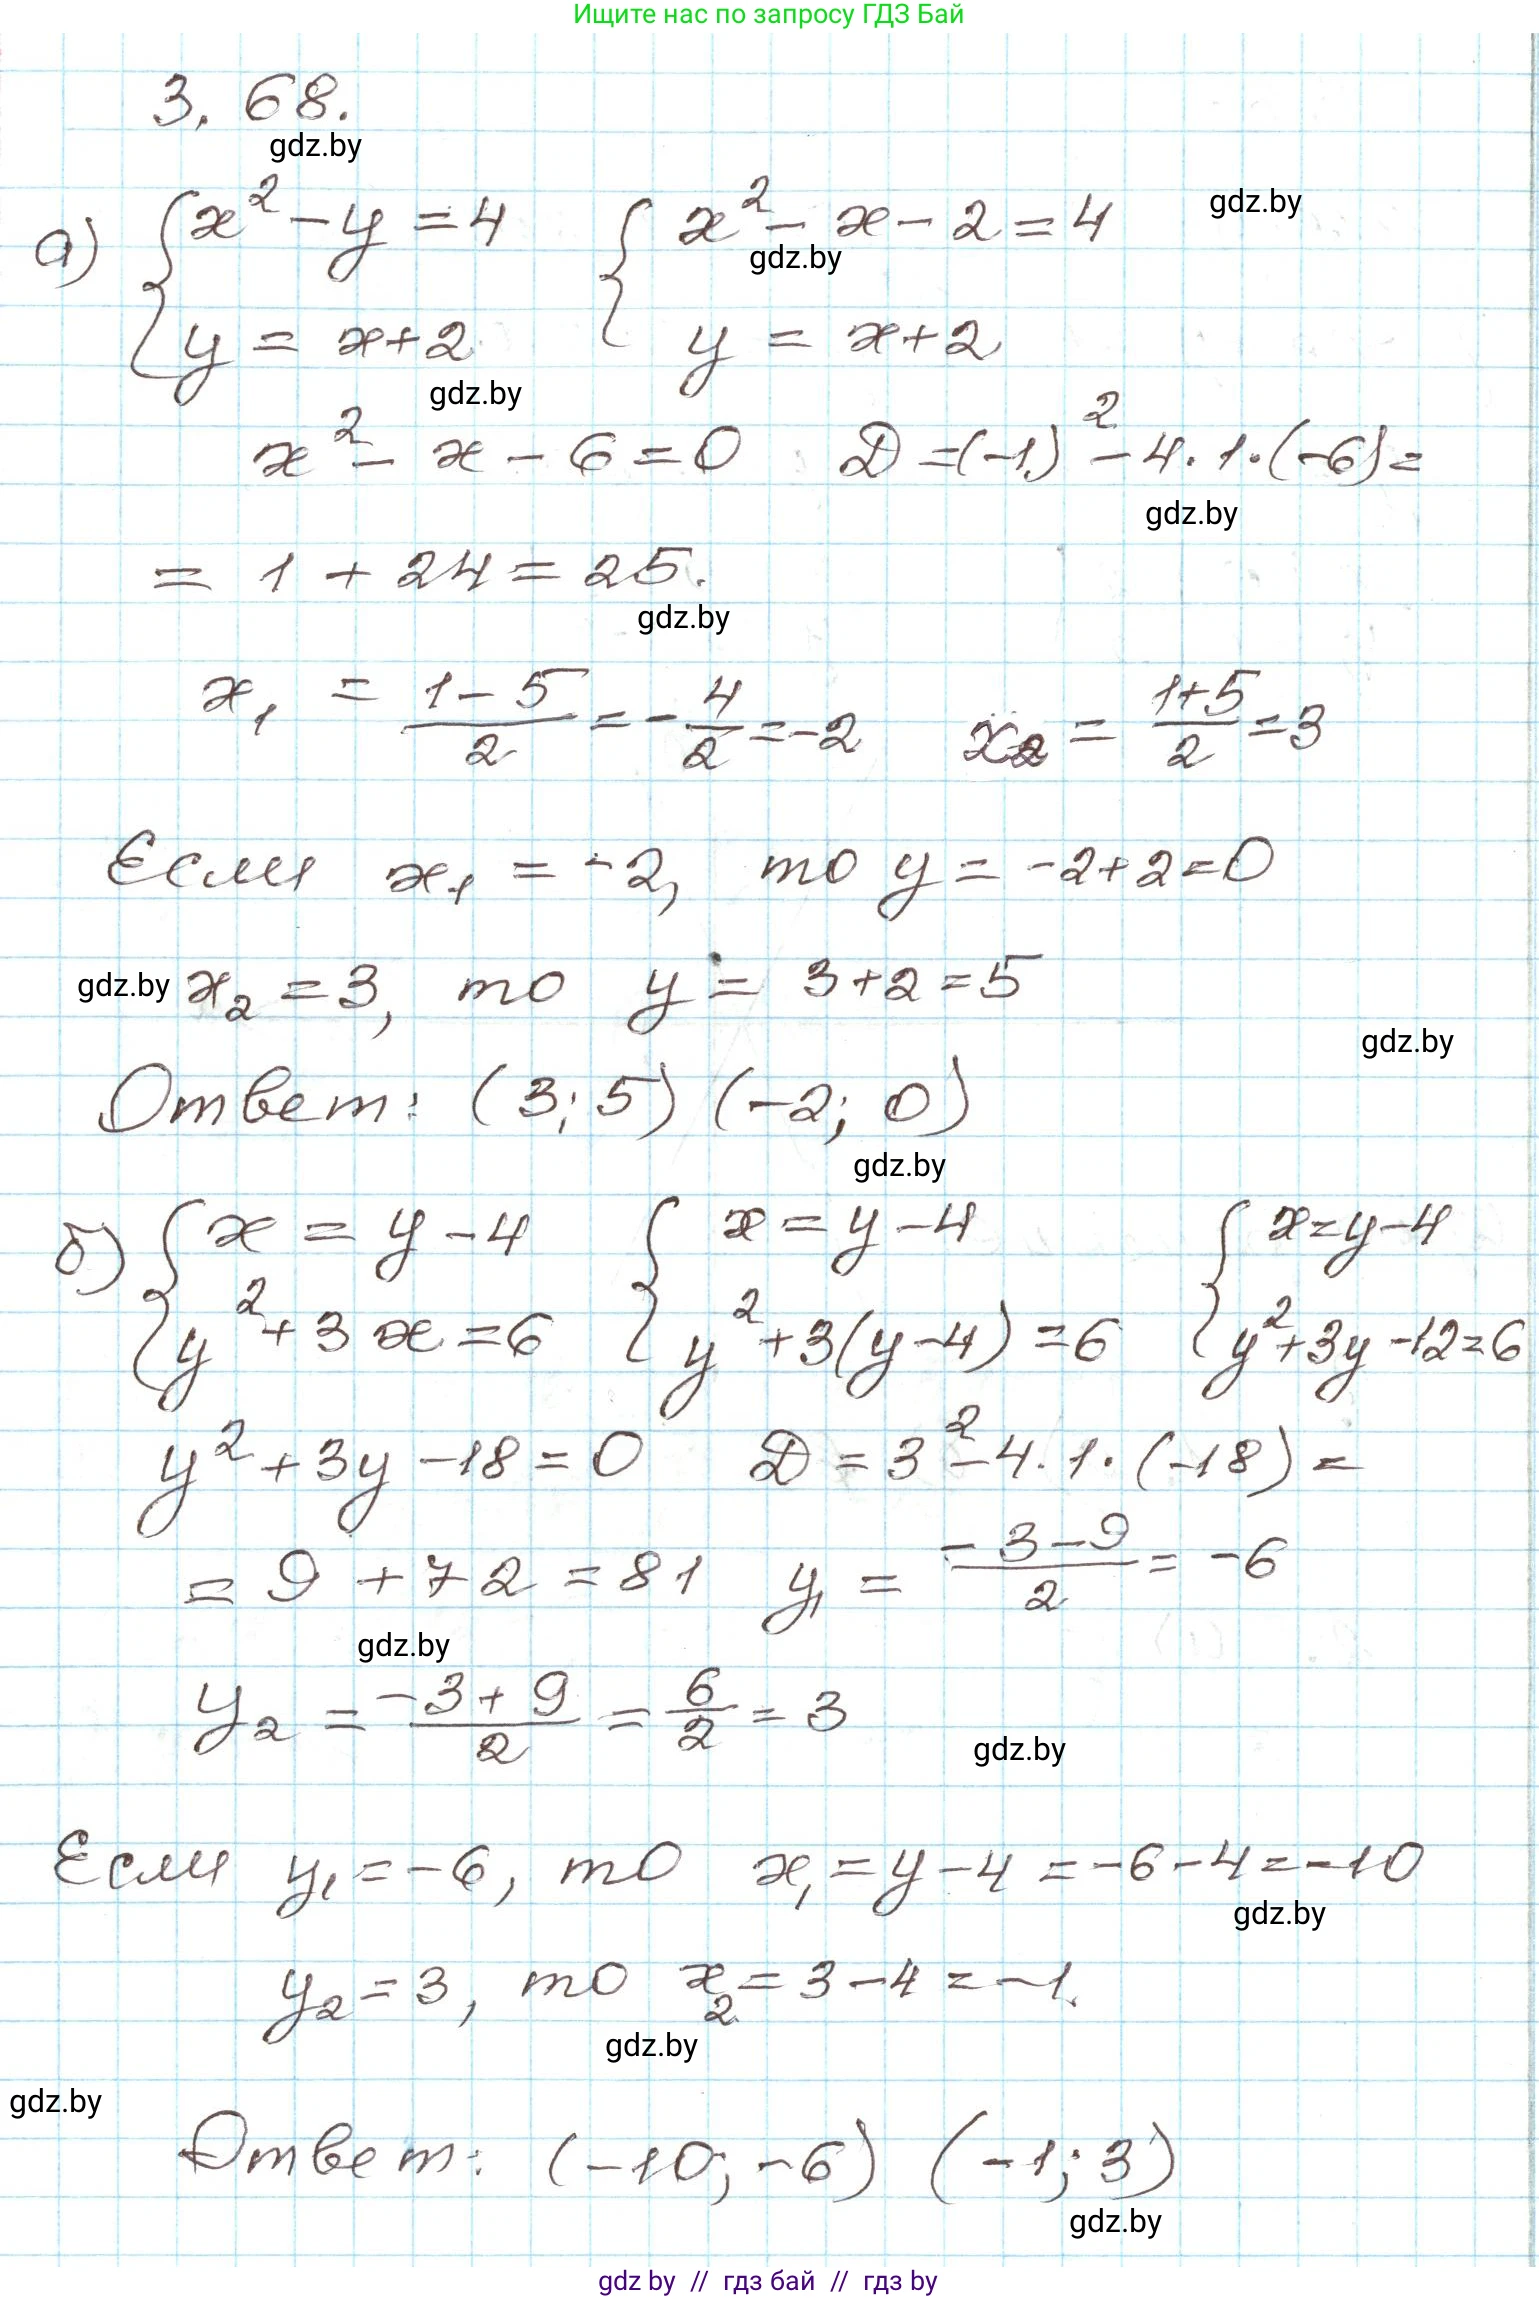 Ищите нас по запросу ГДЗ Бай
3. 68.
gdz.by
а) { x² - y = 4 { x² - x - 2 = 4
gdz.by
gdz.by
y = x+2 y = x+2
gdz.by
x² - x - 6 = 0 D = (-1)² - 4·1·(-6) =
gdz.by
= 1 + 24 = 25.
gdz.by
x₁ = (1-5)/2 = -4/2 = -2 x₂ = (1+5)/2 = 3
Если x₁ = -2, то y = -2+2=0
gdz.by x₂ = 3, то y = 3+2=5
gdz.by
Ответ: (3; 5) (-2; 0)
gdz.by
б) { x = y - 4 { x = y - 4 { x = y - 4
y² + 3x = 6 y² + 3(y-4) = 6 y² + 3y - 12 = 6
y² + 3y - 18 = 0 D = 3² - 4·1·(-18) =
= 9 + 72 = 81 y₁ = (-3-9)/2 = -6
gdz.by
y₂ = (-3+9)/2 = 6/2 = 3
gdz.by
Если y₁ = -6, то x₁ = y - 4 = -6 - 4 = -10
gdz.by
y₂ = 3, то x₂ = 3 - 4 = -1.
gdz.by
gdz.by
Ответ: (-10; -6) (-1; 3)
gdz.by
gdz by // гдз бай // гдз by